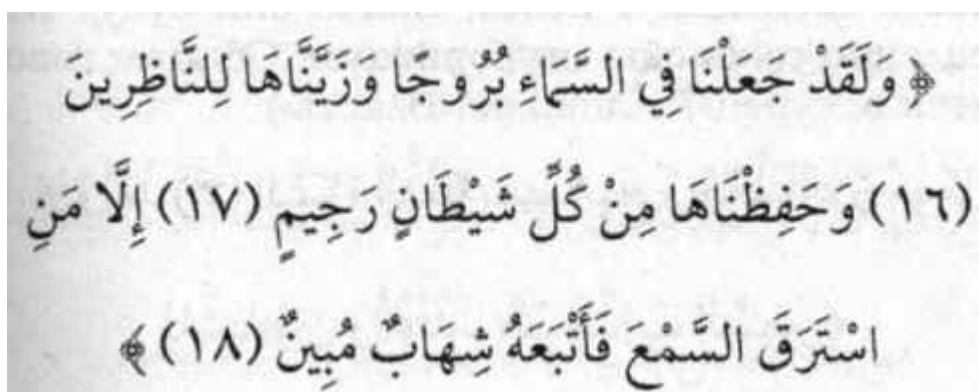 ﴿ ولَقَدْ جَعلْنَا فِي السَّمَاءِ بُرُوجا وزَيَّنَّاهَا لِلنَّاظِرِينَ
(١٦) وَحَفِظْنَاهَا مِنْ كُلِّ شَيْطَانٍ رَجِيمٍ (١٧) إِلَّا مَنِ
اسْتَرَقَ السَّمْعَ فَأَتْبَعَهُ شِهَابٌ مُبِينٌ (١٨) ﴾